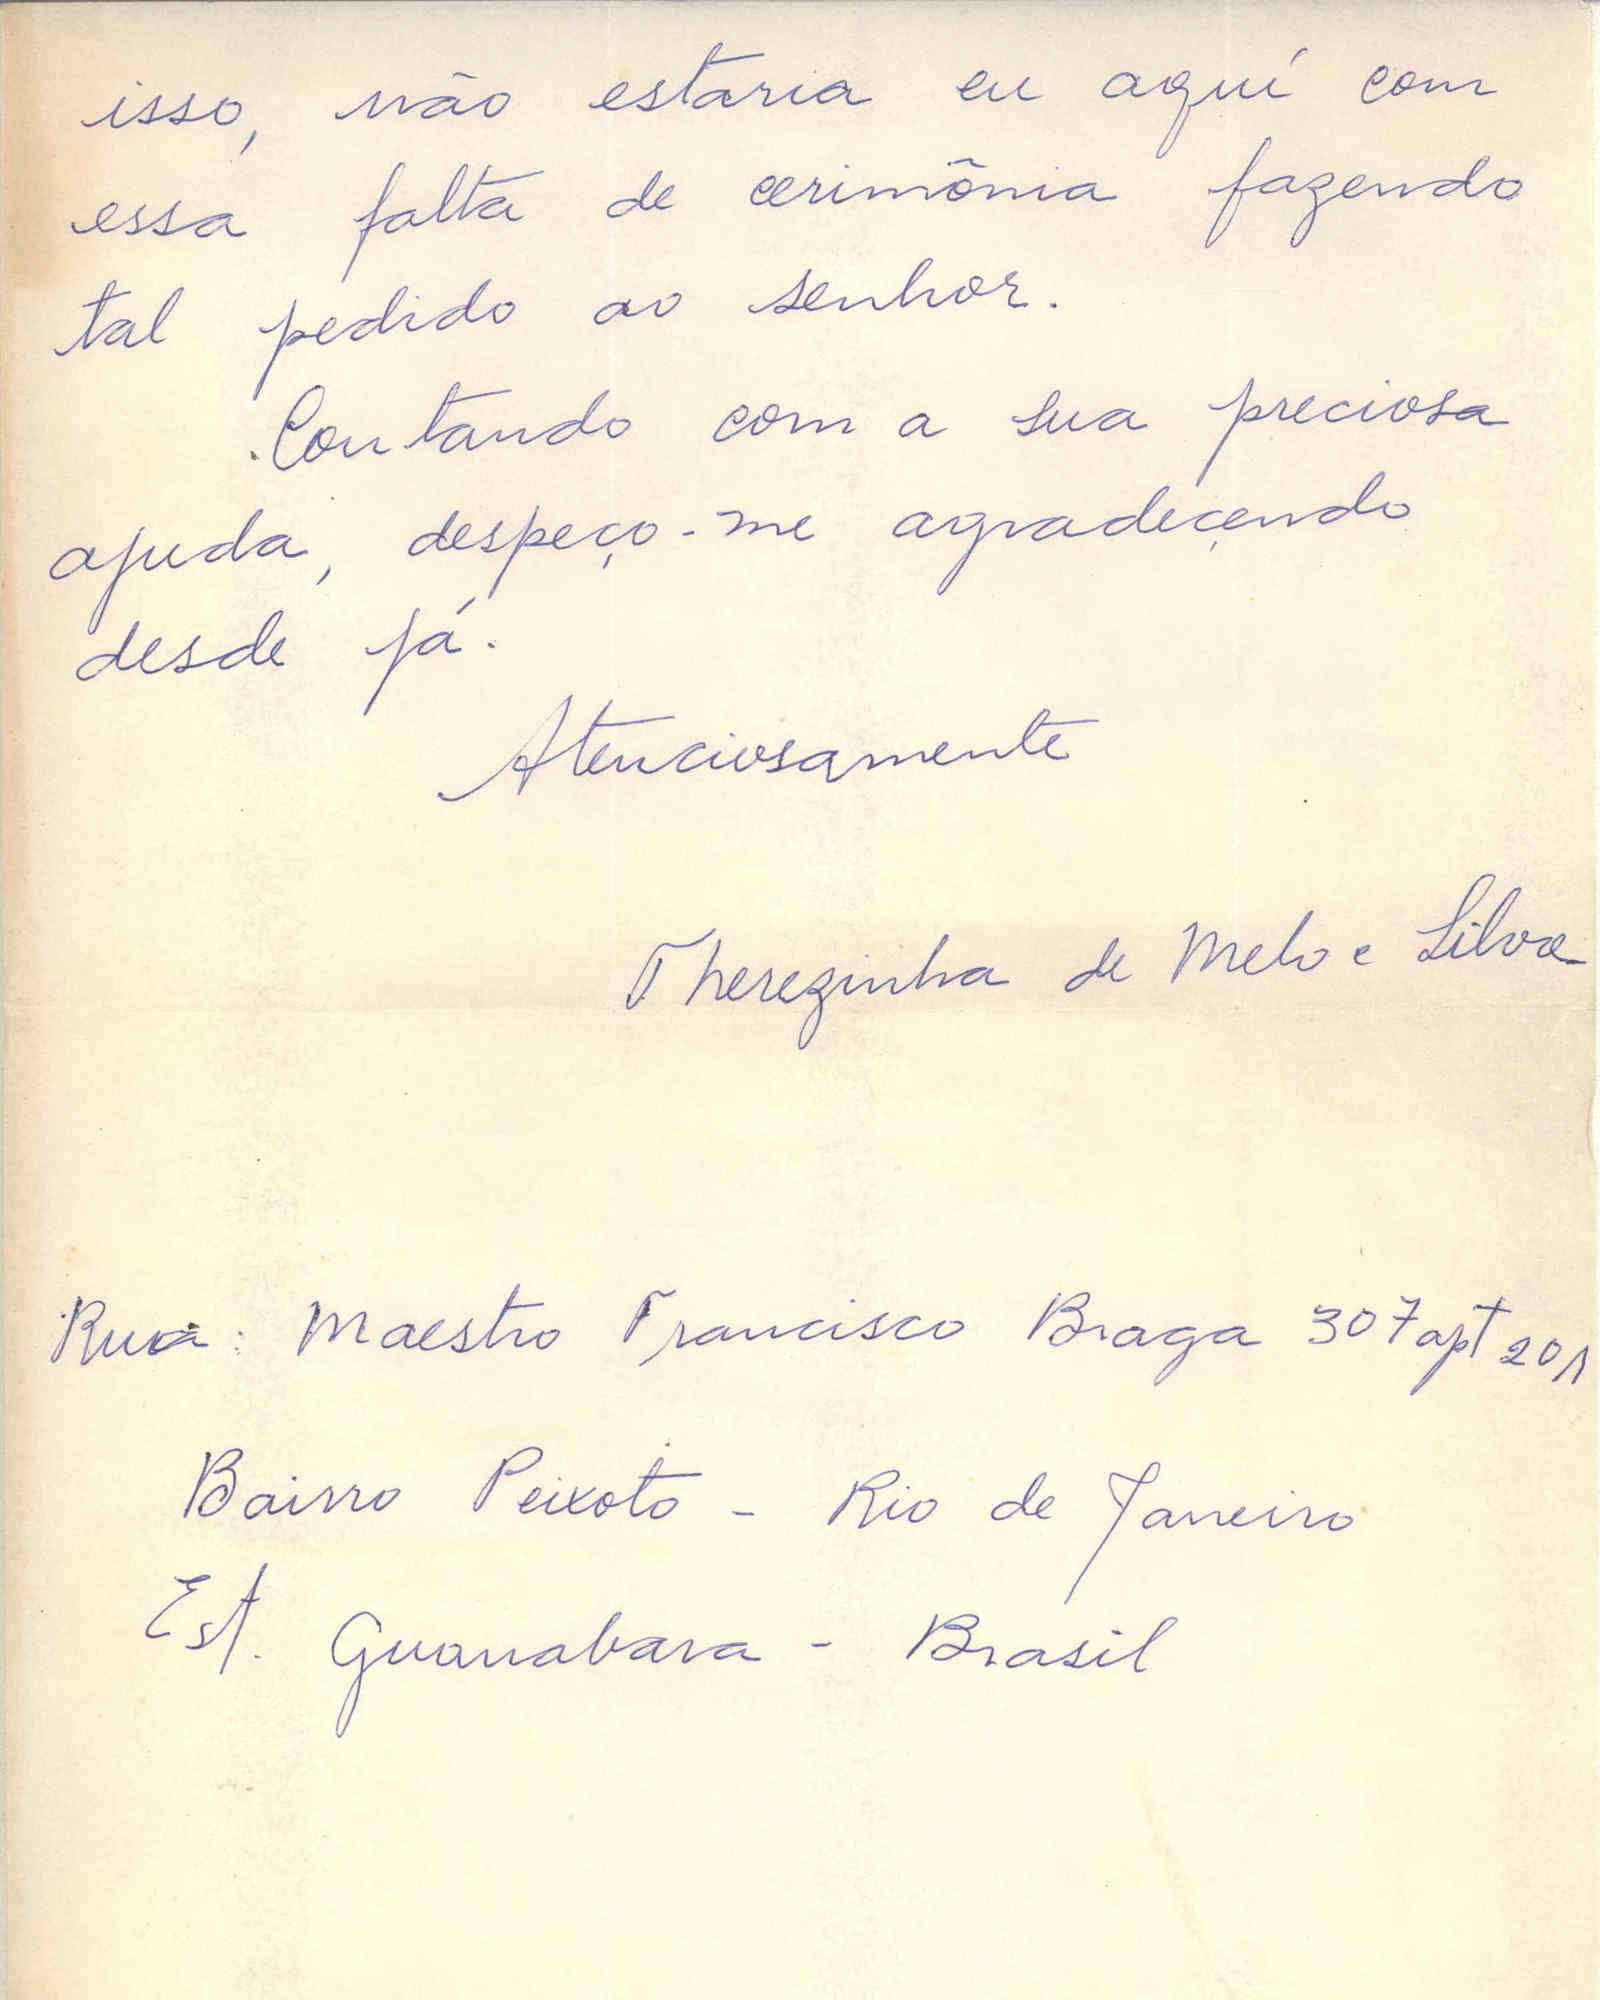 isso, não estaria eu aquí com
essa falta de cerimônia fazendo
tal pedido ao senhor.
Contando com a sua preciosa
ajuda, despeço-me agradeçendo
desde já.
Atenciosamente
Therezinha de Melo e Silva
Rua: Maestro Francisco Braga 307 apt 201
Bairro Peixoto - Rio de Janeiro
Est. Guanabara - Brasil